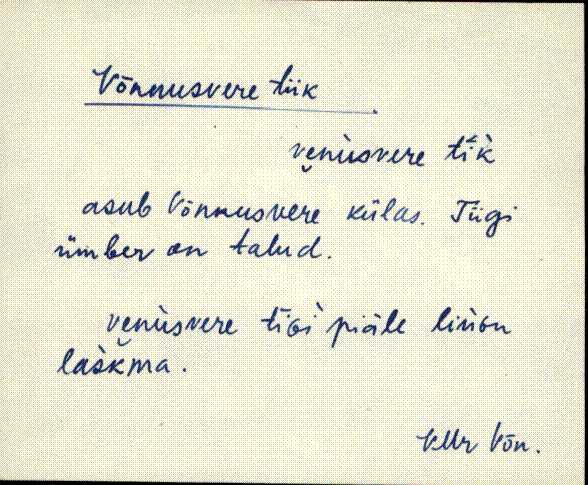 Võnnusvere tiik
vẹnùsvere tìk
asub Võnnusvere külas. Tiigi
ümber on talud.
vẹnùsvere tīGi piäle linòn
laškma.
VMr Võn.